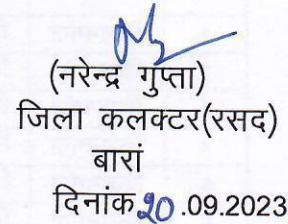 (नरेन्द्र गुप्ता)
जिला कलक्टर(रसद)
बारां
दिनांक 20 .09.2023